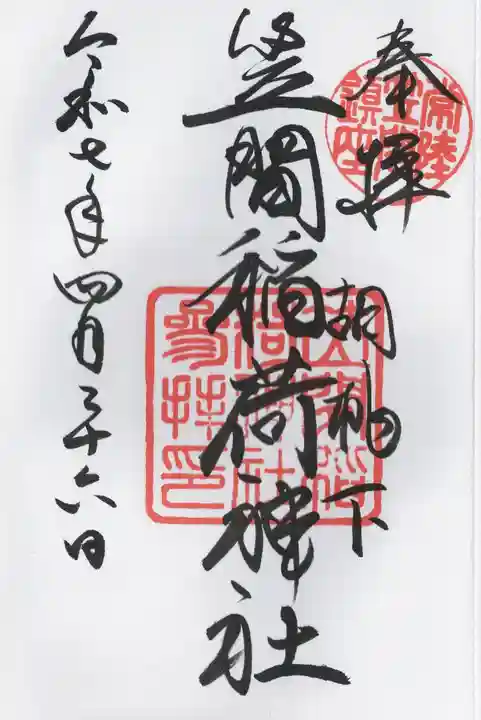 奉拝
常陸
笠間
鎮座
胡桃下
笠間稲荷神社
笠間稲
荷神社
参拝印
令和七年四月二十六日